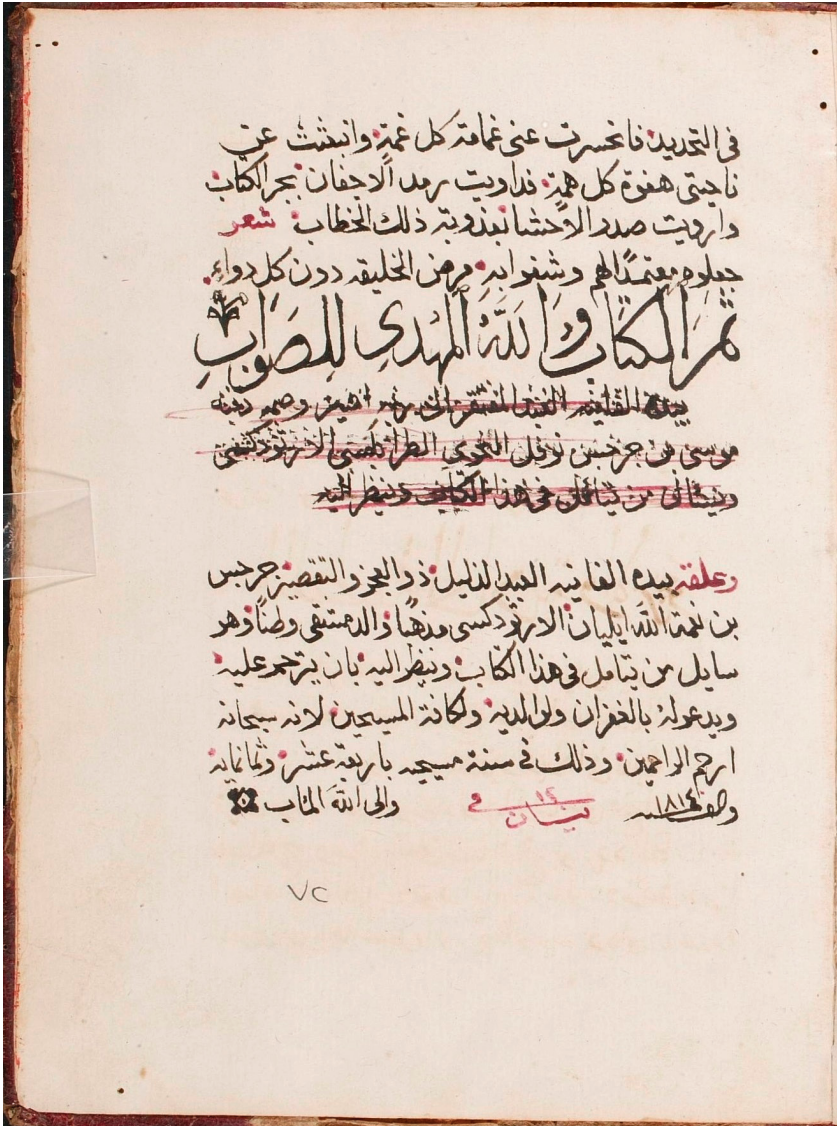 في التحديد فانحسرت عني غمامة كل غمة وانبثثت عن
ناحيتي هفوة كل همة فداويت رمد الاجفان بحبر الكتاب
وارويت صدر الاحشا بعذوبة ذلك الخطاب شعر
جعلوه معتمدًا لهم وشفوا به مرض الخليقه دون كل دواءِ
تم الكتاب والله المهدي للصواب
بيده الفانيه العبد المفتقر الى
موسى بن جرجس نوفل النحوي الطرابلسي الارثودكسي
ويسئال من يتامل في هذا الكتاب وينظر اليه
وعلقه بيده الفانيه العبد الذليل ذو العجز والتقصير جرجس
بن نعمة الله ايليان الارثودكسي مذهبًا والدمشقي وطنًا وهو
سايل من يتامل في هذا الكتاب وينظر اليه بان يترحم عليه
ويدعو له بالغفران ولوالديه ولكافة المسيحيين لانه سبحانه
ارحم الراحمين وذلك في سنة مسيحيه باربعة عشر وثمانمايه
والف ١٨١٤ سنه في ١٢ نيسان والى الله الماب
٧٢